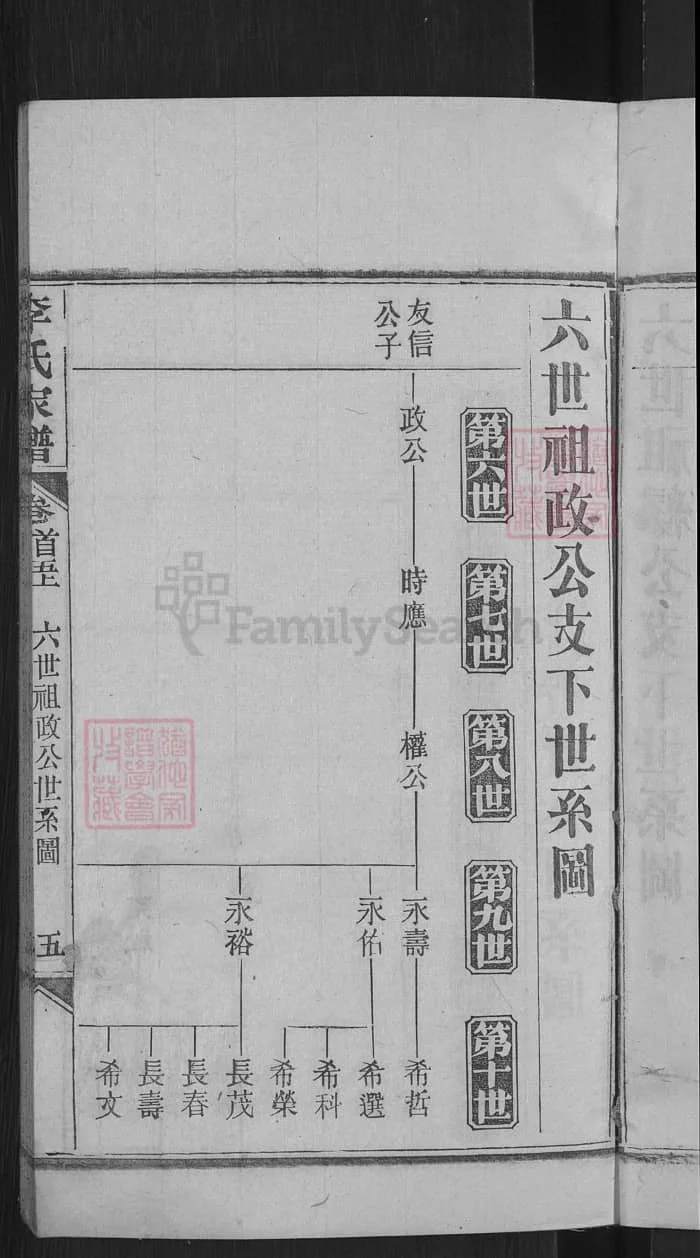 六世祖政公支下世系圖
第六世
第七世
第八世
第九世
第十世
友信
公子
政公
時應
權公
永壽
永佑
永裕
希哲
希選
希科
希榮
長茂
長春
長壽
希文
李氏家譜
卷首
六世祖政公世系圖
五
FamilySearch